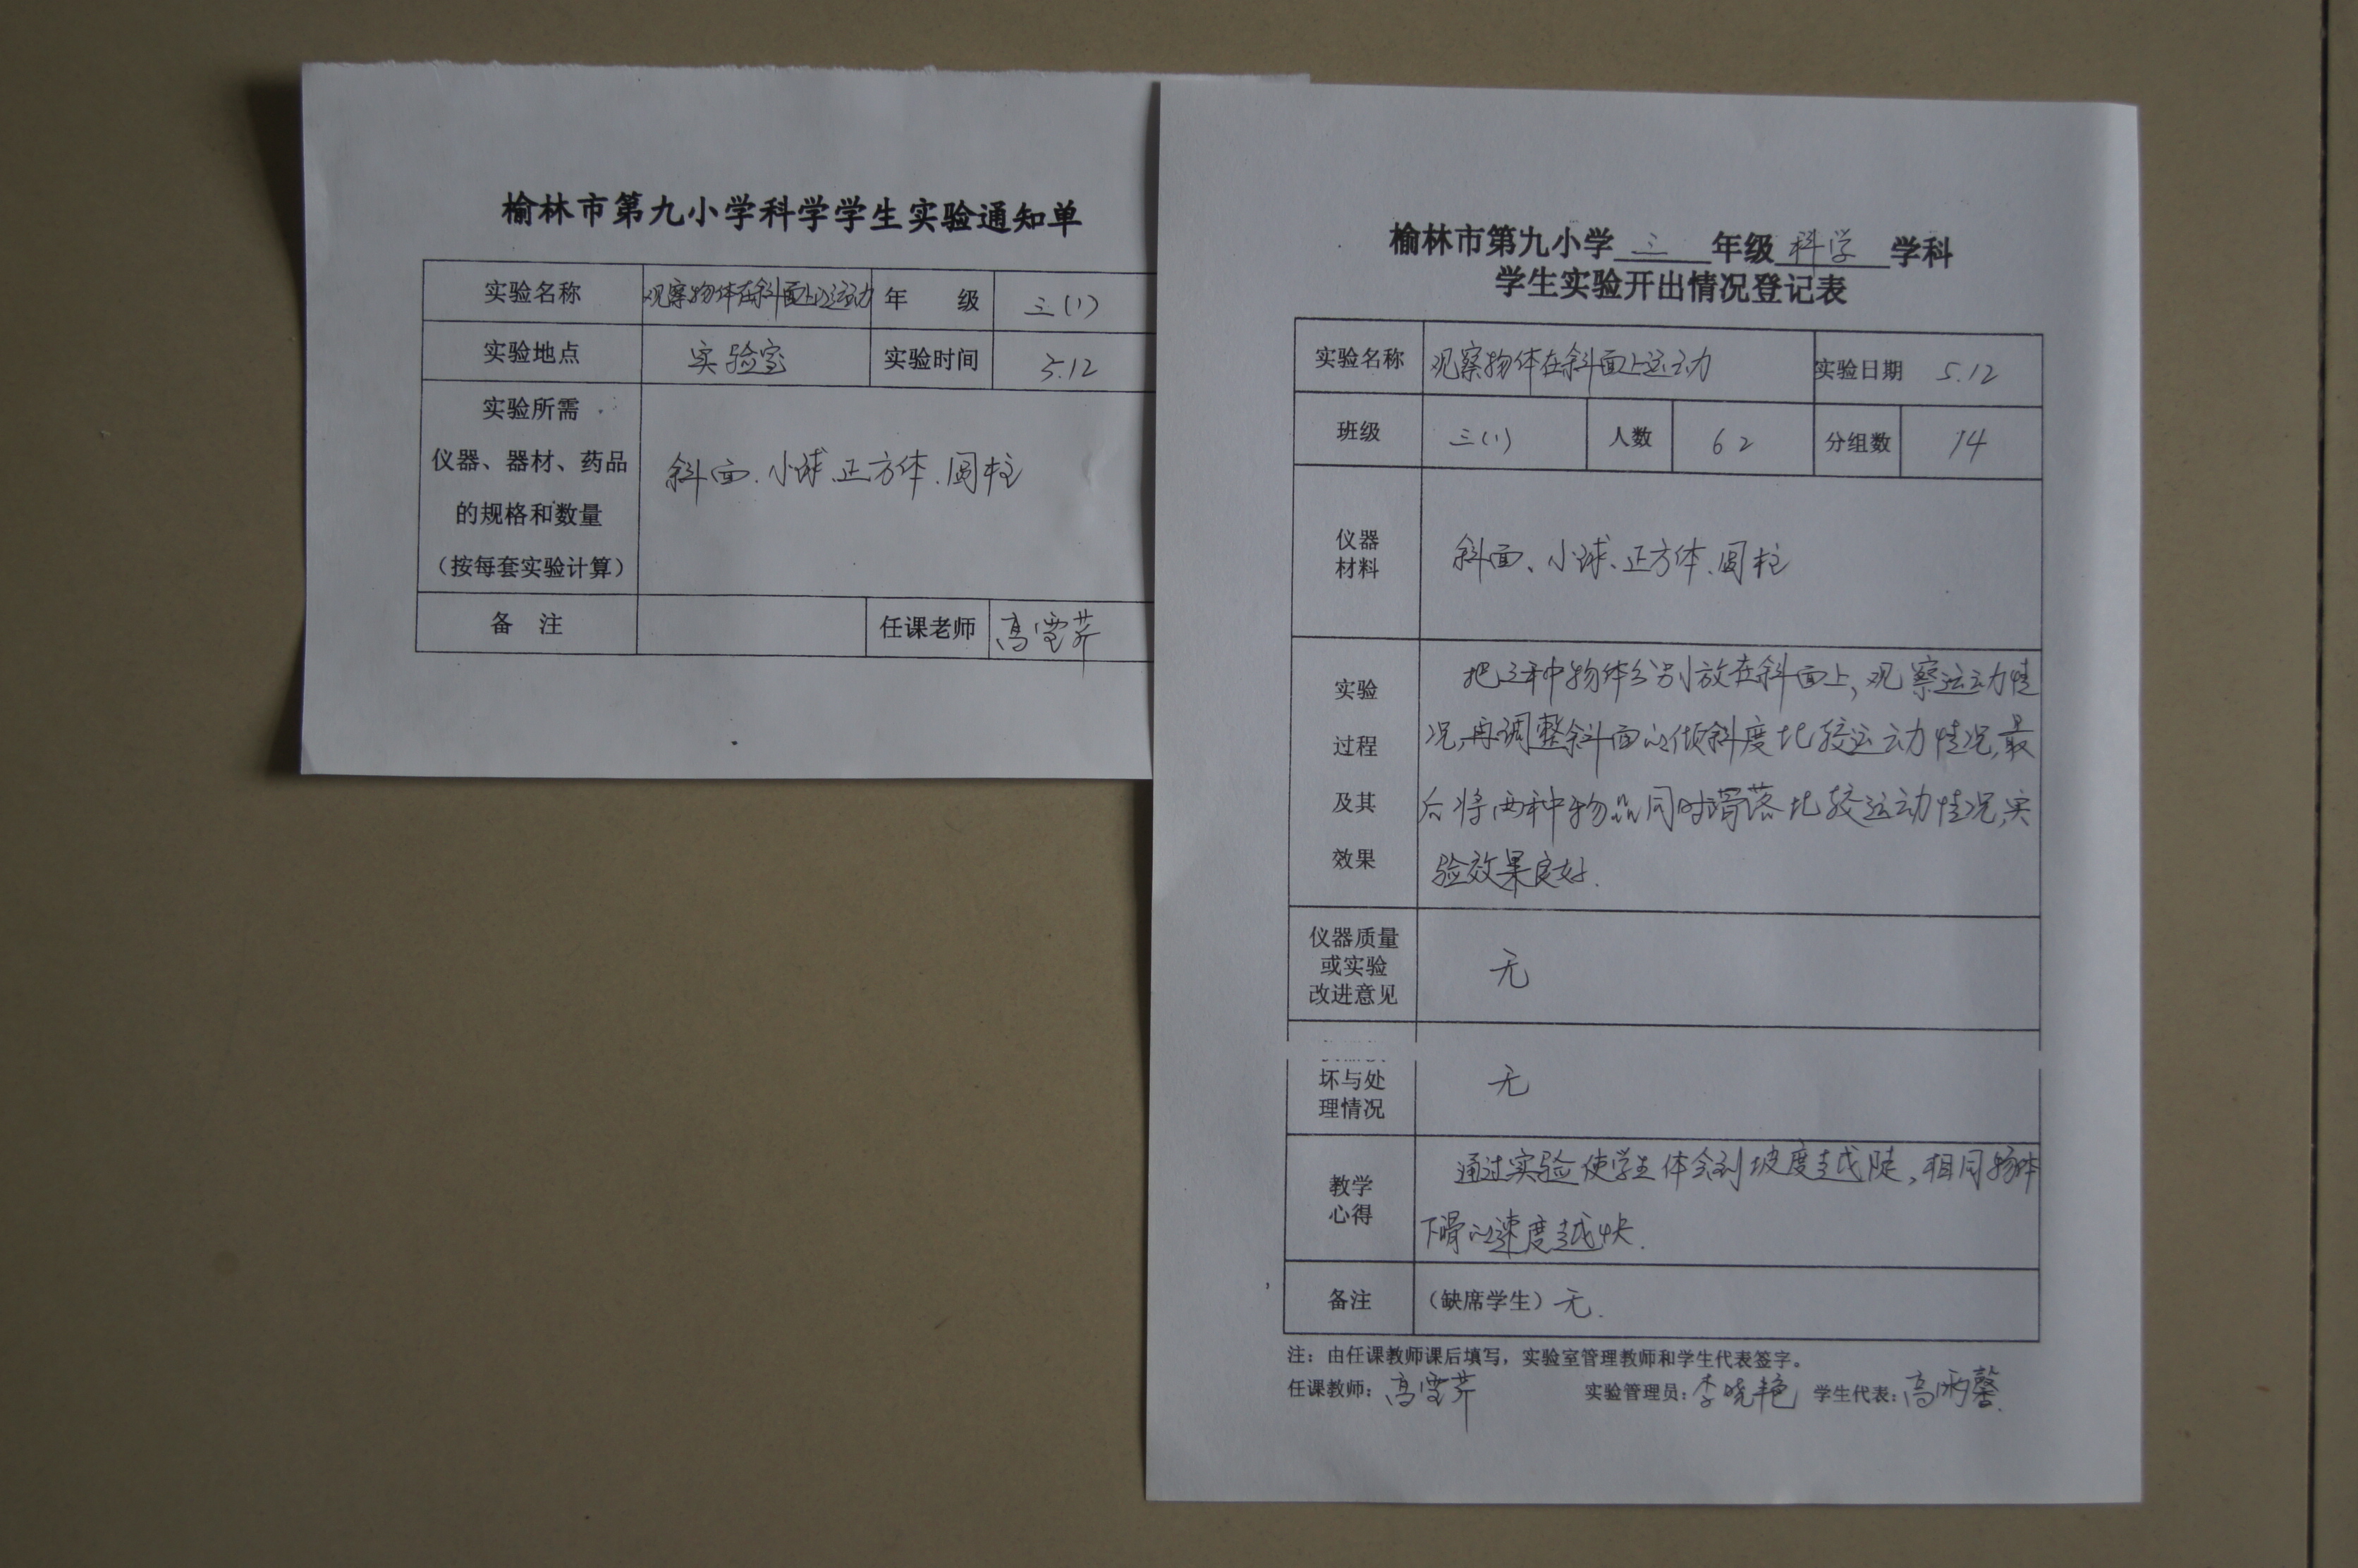 榆林市第九小学科学学生实验通知单
实验名称 观察物体在斜面上的运动 年 级 三(1)
实验地点 实验室 实验时间 5.12
实验所需
仪器、器材、药品
的规格和数量
(按每套实验计算)
斜面、小球、正方体、圆柱
备 注 任课老师 高雪芹
榆林市第九小学 三 年级 科学 学科
学生实验开出情况登记表
实验名称 观察物体在斜面上运动 实验日期 5.12
班级 三(1) 人数 62 分组数 14
仪器
材料
斜面、小球、正方体、圆柱
实验
过程
及其
效果
把三种物体分别放在斜面上,观察运动情
况,再调整斜面的倾斜度比较运动情况,最
后将两种物品同时滑落比较运动情况,实
验效果良好.
仪器质量
或实验
改进意见
无
坏与处
理情况
无
教学
心得
通过实验使学生体会到坡度越陡,相同物体
下滑的速度越快.
备注 (缺席学生) 无.
注:由任课教师课后填写,实验室管理教师和学生代表签字。
任课教师: 高雪芹 实验管理员: 李晓艳 学生代表: 高雨馨.